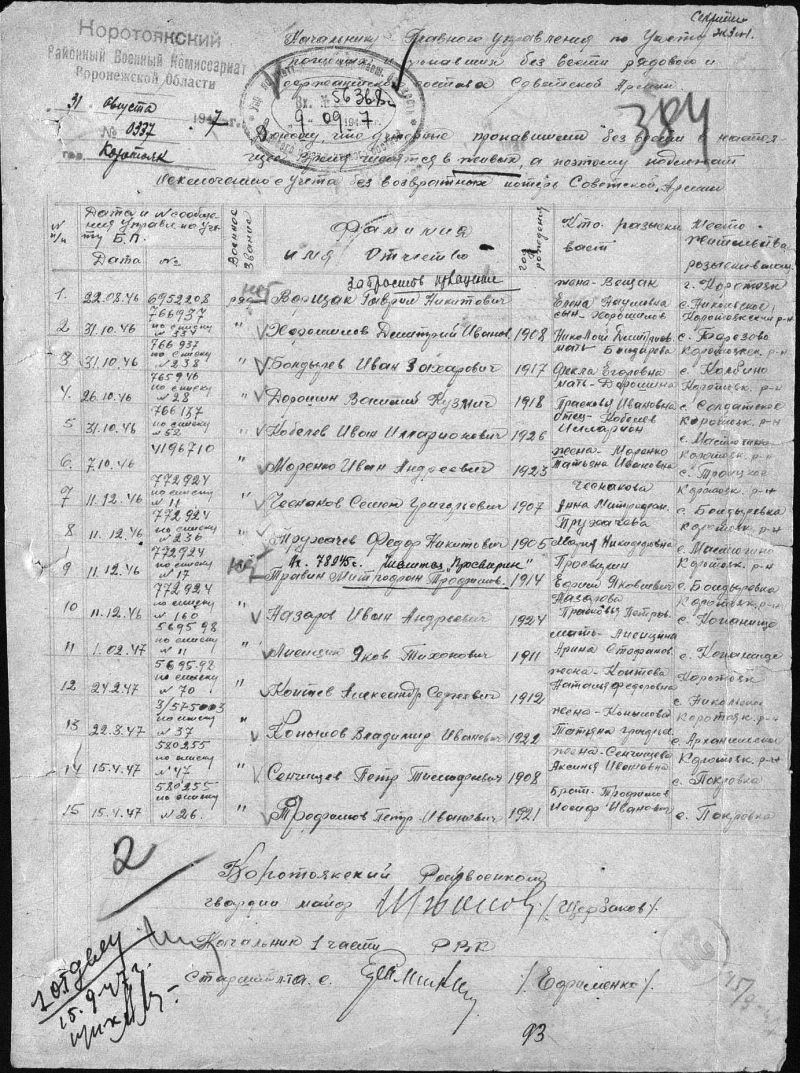 Секретно
Экз №1.
Коротоякский
Районный Военный Комиссариат
Воронежской Области
31 августа 1947 г.
№ 0337
гор. Коротояк
Начальнику Главного управления по учету
погибших и пропавших без вести рядового и
сержантского состава Советской Армии
Вх. № 56368с
9-09 1947
384
Доношу, что которые пропавшими без вести в настоя-
щее время числятся в живых, а поэтому подлежат
исключению с учета безвозвратных потерь Советской Армии
№ п/п
Дата и № сообще-
ния управл. по уче-
ту Б.П.
Дата №
Военное звание
Фамилия
имя отчество
год рождения
Кто разыски
вает
Место
жительства
разыскивающ.
1. 22.08.46 6952208 ряд Ворщак Гаврил Никитович жена-Вещак Елена Наумовна г. Коротояк
2 31.10.46 766937 по списку № 334 " Хорошилов Дмитрий Иванов. 1908 сын-Хорошилов Николай Дмитриев с. Никольское Коротоякский р-н
3 31.10.46 766937 по списку № 238 " Бондырев Иван Захарович 1917 мать Бондарева Фекла Егоровна с. Борозово Коротоякск. р-н
4. 26.10.46 765946 по списку № 28 " Дорошин Василий Кузмич 1918 мать-Дорошина Прасковья Ивановна с. Колбино Коротояк. р-н
5 31.10.46 766137 по списку № 62 " Кобелев Иван Илларионович 1926 отец-Кобелев Илларион с. Солдатское Коротояк. р-н
6. 7.10.46 4196710 " Моренко Иван Андреевич 1923 жена-Моренко Татьяна Ивановна с. Мастюгино Коротояк. р-н
7 11.12.46 772924 по списку № 11 " Чеснаков Семен Григорьевич 1907 Чеснакова Анна Митрофан. с. Троицкое Коротояк. р-н
8 11.12.46 772924 по списку № 236 " Пружачев Федор Никитович 1905 Пружачева Мария Никифоровна с. Болдыревка Коротояк. р-н
9 11.12.46 772924 по списку № 17 Вх. 78945с. Травин Митрофан Трофимов. 1914 Просвирин Ефрим Яковлевич с. Мастюгино Коротояк. р-н
10 11.12.46 772924 по списку № 160 " Назаров Иван Андреевич 1924 Назарова Прасковья Петров. с. Болдыревка Коротояк. р-н
11 1.02.47 569598 по списку № 11 " Лисицин Яков Тихонович 1911 мать-Лисицина Арина Стефанов. с. Копанище
12 24.2.47 569592 по списку № 70 " Коптев Александр Сергеевич 1912 жена-Коптева Наталия Федоровна с. Копанище Коротояк
13 22.3.47 3/575003 по списку № 37 " Копылов Владимир Иванович 1922 жена-Копылова Татьяна Григорьев с. Никольское Коротояк. р-н
14 15.4.47 580255 по списку № 47 " Сенчищев Петр Тимофеевич 1908 жена-Сенчищева Аксинья Ивановна с. Архангельское Коротояк. р-н с. Покровка
15 15.4.47 580255 по списку № 26. " Трофимов Петр Иванович 1921 Брат-Трофимов Иосиф Иванович с. Покровка
2
Коротоякский Райвоенком
гвардии майор /Щербаков/.
Начальник 1 части РВК
Старший л-т а. с. /Ефременко/.
1 отделу
15.9.47 г.
15/9-47
93